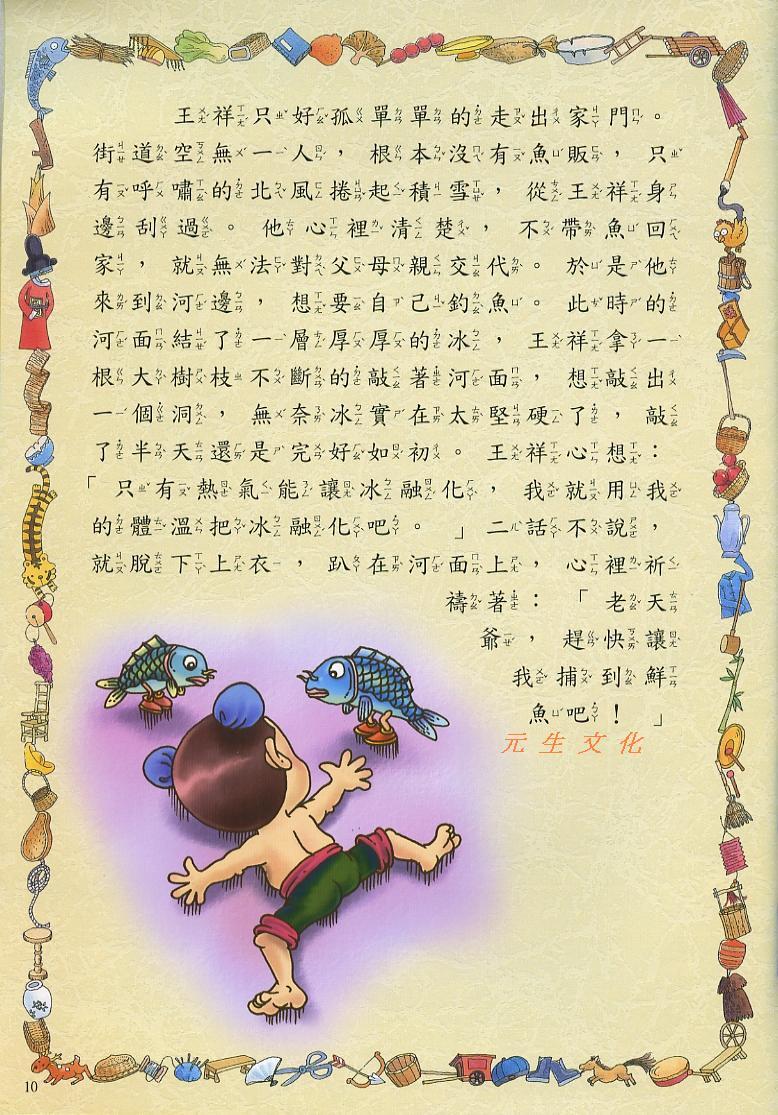 王祥只好孤單單的走出家門。
街道空無一人，根本沒有魚販，只
有呼嘯的北風捲起積雪，從王祥身
邊刮過。他心裡清楚，不帶魚回
家，就無法對父母親交代。於是他
來到河邊，想要自己釣魚。此時的
河面結了一層厚厚的冰，王祥拿一
根大樹枝不斷的敲著河面，想敲出
一個洞，無奈冰實在太堅硬了，敲
了半天還是完好如初。王祥心想：
「只有熱氣能讓冰融化，我就用我
的體溫把冰融化吧。」二話不說，
就脫下上衣，趴在河面上，心裡祈
禱著：「老天
爺，趕快讓
我捕到鮮
魚吧！」
元生文化
10